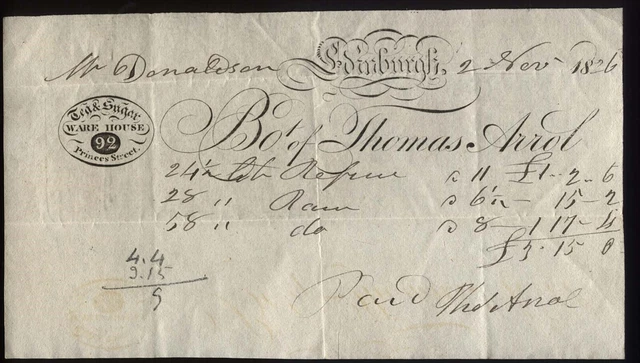 Mr Donaldson Edinburgh, 2 Nov 1826
Tea & Sugar
WARE HOUSE
92
Princes Street.
Bot of Thomas Arrol
24½ lb Refine @ 11 £1 - 2 - 6
28 " Raw @ 6½ - 15 - 2
58 " do @ 8 - 1 17 - 4
£3 . 15 0
4.4
9.15
9
Paid Thos Arrol